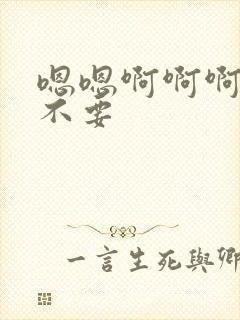 嗯嗯啊啊啊
不要
一言生死與卿